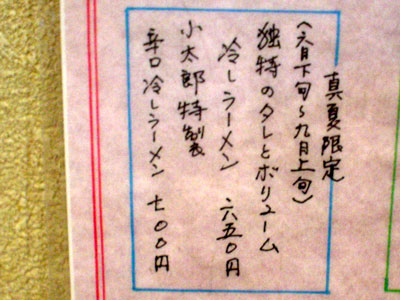 真夏限定
(六月下旬～九月上旬)
独特のタレとボリューム
冷しラーメン 六五〇円
小太郎特製
辛口冷しラーメン 七〇〇円